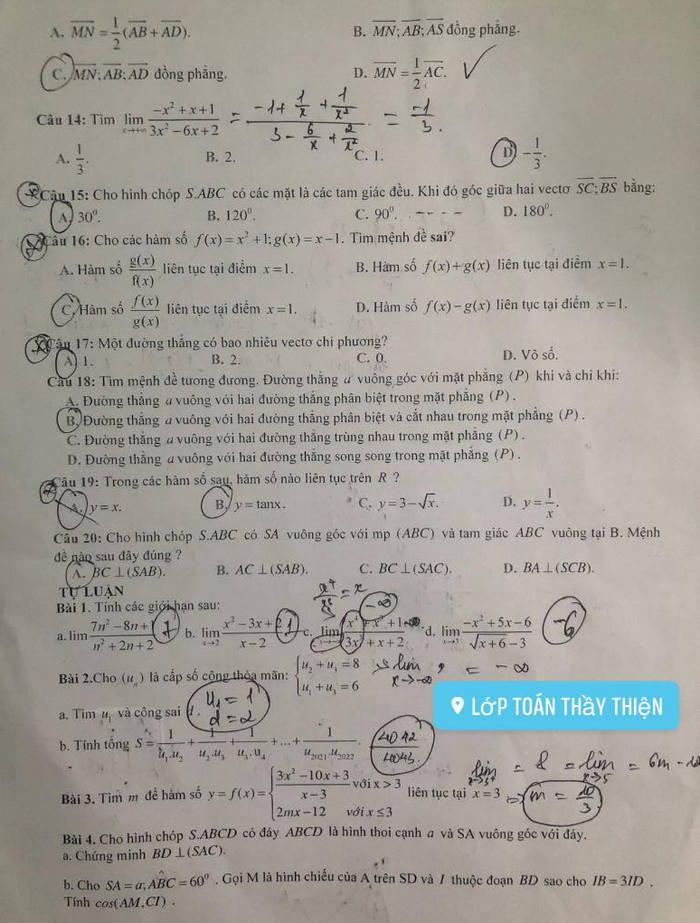 A. MN = 1/2(AB + AD).
B. MN; AB; AS đồng phẳng.
C. MN; AB; AD đồng phẳng.
D. MN = 1/2 AC.
Câu 14: Tìm lim x→+∞ (−x² + x + 1)/(3x² − 6x + 2) = (−1 + 1/x + 1/x²)/(3 − 6/x + 2/x²) = −1/3.
A. 1/3.
B. 2.
C. 1.
D. −1/3.
Câu 15: Cho hình chóp S.ABC có các mặt là các tam giác đều. Khi đó góc giữa hai vectơ SC; BS bằng:
A. 30⁰.
B. 120⁰.
C. 90⁰.
D. 180⁰.
Câu 16: Cho các hàm số f(x) = x² + 1; g(x) = x − 1. Tìm mệnh đề sai?
A. Hàm số g(x)/f(x) liên tục tại điểm x = 1.
B. Hàm số f(x) + g(x) liên tục tại điểm x = 1.
C. Hàm số f(x)/g(x) liên tục tại điểm x = 1.
D. Hàm số f(x) − g(x) liên tục tại điểm x = 1.
Câu 17: Một đường thẳng có bao nhiêu vectơ chỉ phương?
A. 1.
B. 2.
C. 0.
D. Vô số.
Câu 18: Tìm mệnh đề tương đương. Đường thẳng a vuông góc với mặt phẳng (P) khi và chỉ khi:
A. Đường thẳng a vuông với hai đường thẳng phân biệt trong mặt phẳng (P).
B. Đường thẳng a vuông với hai đường thẳng phân biệt và cắt nhau trong mặt phẳng (P).
C. Đường thẳng a vuông với hai đường thẳng trùng nhau trong mặt phẳng (P).
D. Đường thẳng a vuông với hai đường thẳng song song trong mặt phẳng (P).
Câu 19: Trong các hàm số sau, hàm số nào liên tục trên R ?
A. y = x.
B. y = tanx.
C. y = 3 − √x.
D. y = 1/x.
Câu 20: Cho hình chóp S.ABC có SA vuông góc với mp (ABC) và tam giác ABC vuông tại B. Mệnh
đề nào sau đây đúng ?
A. BC ⊥ (SAB).
B. AC ⊥ (SAB).
C. BC ⊥ (SAC).
D. BA ⊥ (SCB).
TỰ LUẬN
x⁴/x³ = x
Bài 1. Tính các giới hạn sau:
−∞
a. lim (7n² − 8n + )/(n² + 2n + 2) 7
b. lim x→2 (x² − 3x + 2)/(x − 2) 1
c. lim (x⁴ + x² + 1)/(3x³ + x + 2)
d. lim x→3 (−x² + 5x − 6)/(√(x + 6) − 3) −6
Bài 2. Cho (uₙ) là cấp số cộng thỏa mãn: { u₂ + u₃ = 8
u₁ + u₃ = 6
lim x→−∞ = −∞
LỚP TOÁN THẦY THIỆN
a. Tìm u₁ và công sai d. u₁ = 1
d = 2
b. Tính tổng S = 1/(u₁.u₂) + 1/(u₂.u₃) + 1/(u₃.u₄) + ... + 1/(u₂₀₂₁.u₂₀₂₂). 4043
= 8 = lim = 6m − 12
Bài 3. Tìm m để hàm số y = f(x) = { (3x² − 10x + 3)/(x − 3) với x > 3
2mx − 12 với x ≤ 3
liên tục tại x = 3 => m = 10/3
Bài 4. Cho hình chóp S.ABCD có đáy ABCD là hình thoi cạnh a và SA vuông góc với đáy.
a. Chứng minh BD ⊥ (SAC).
b. Cho SA = a; ABC = 60⁰. Gọi M là hình chiếu của A trên SD và I thuộc đoạn BD sao cho IB = 3ID .
Tính cos(AM, CI) .